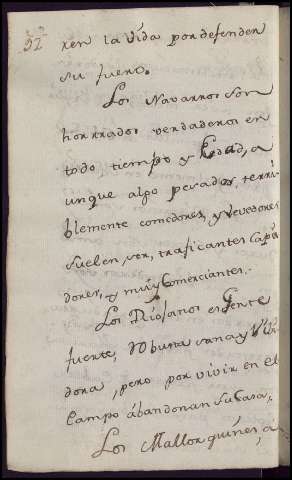 32.
ren la vida por defender
su fuero.
Los Navarros son
honrrados verdaderos en
todo tiempo y Edad, a
unque algo pesados, terri
blemente comedores, y vevedores
suelen ser, traficantes
dores, y muy Comerciantes.
Los Riojanos es Gente
fuerte, robusta sana y
dora, pero por vivir en el
Campo abandonan su Casa,
Los Mallorquines, a